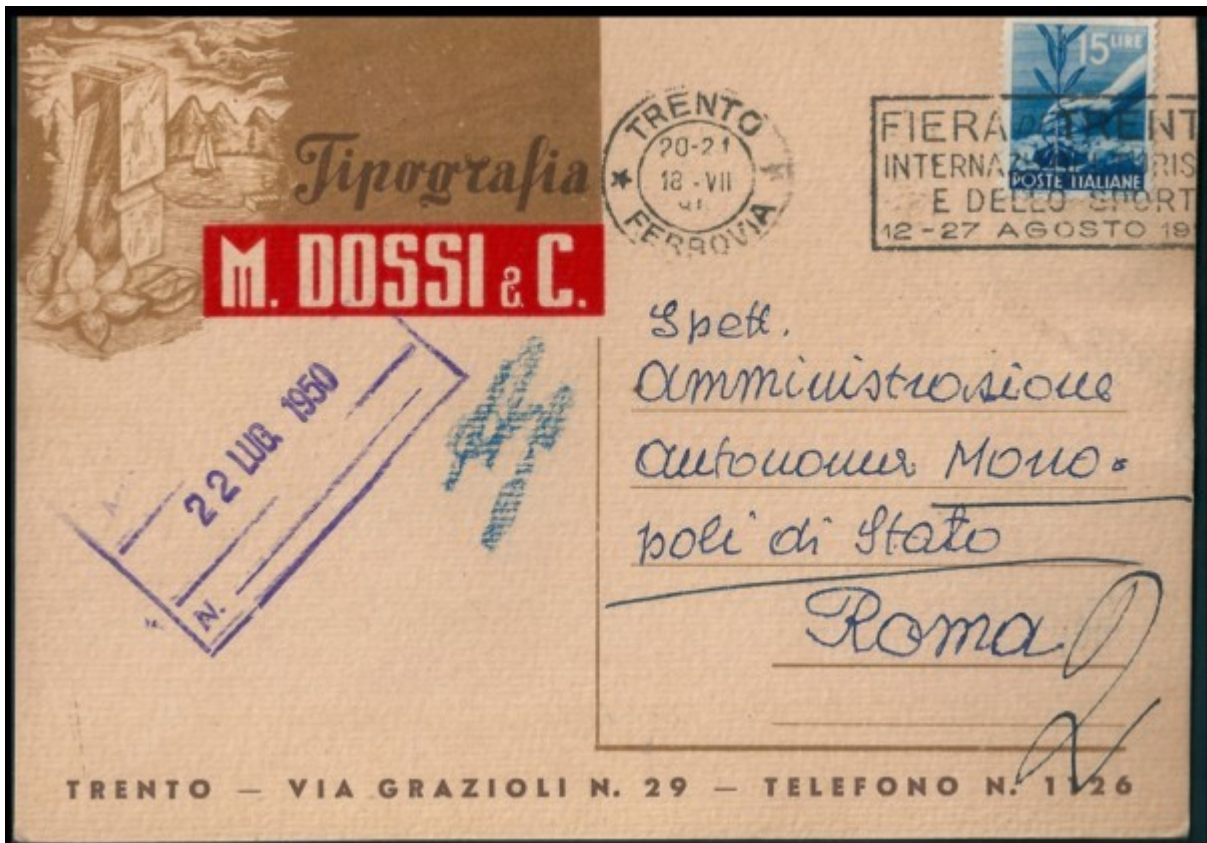 Tipografia
M. DOSSI & C.
TRENTO
20-21
18 - VII
FERROVIA
FIERA DI TRENT
INTERNA
E DELLO SPORT
12-27 AGOSTO 19
15 LIRE
POSTE ITALIANE
22 LUG. 1950
N.
Spett.
Amministrazione
autonoma Mono-
poli di Stato
Roma
TRENTO — VIA GRAZIOLI N. 29 — TELEFONO N. 1126